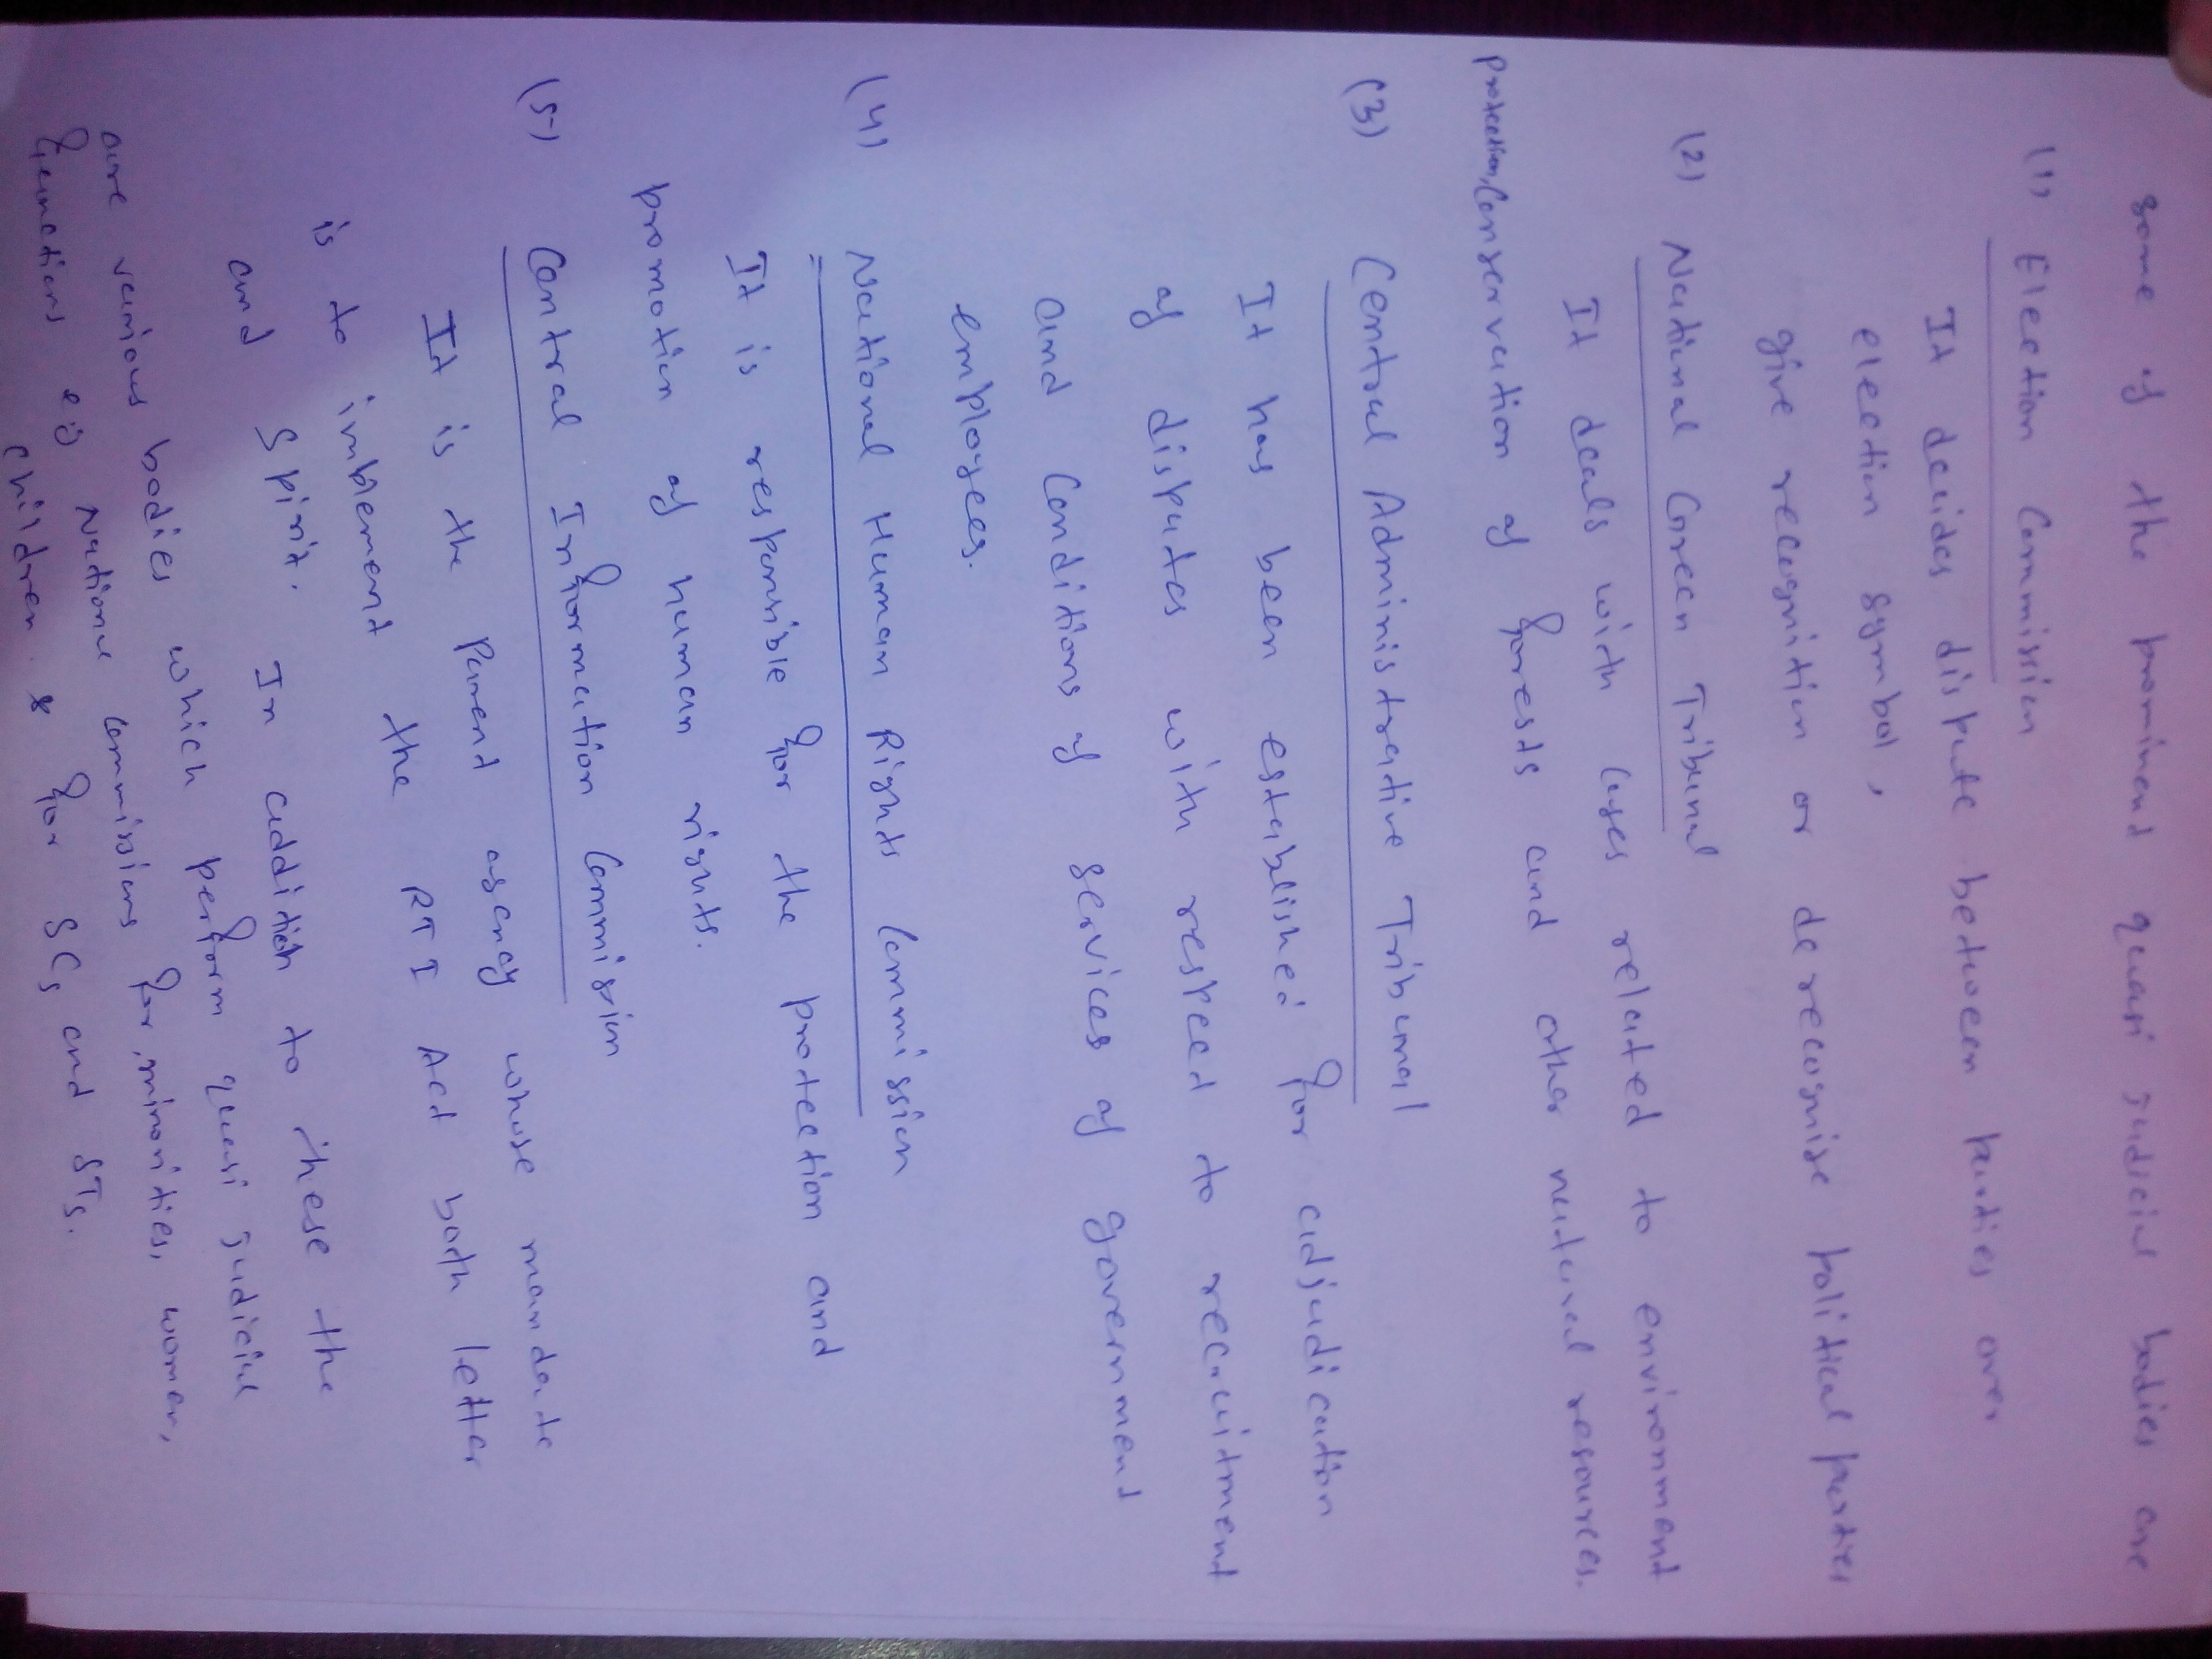 some of the prominent quasi judicial bodies are
(1) Election Commission
It decides dispute between parties over
election symbol,
give recognition or derecognise political parties
(2) National Green Tribunal
It deals with cases related to environment
protection, Conservation of forests and other natural resources.
(3) Central Administrative Tribunal
It has been established for adjudication
of disputes with respect to recruitment
and Conditions of services of government
employees.
(4) National Human Rights Commission
It is responsible for the protection and
promotion of human rights.
(5) Central Information Commission
It is the Parent agency whose mandate
is to implement the RTI Act both letter
and Spirit. In addition to these the
are various bodies which perform quasi judicial
functions eg National Commissions for minorities, women,
children & for SCs and STs.